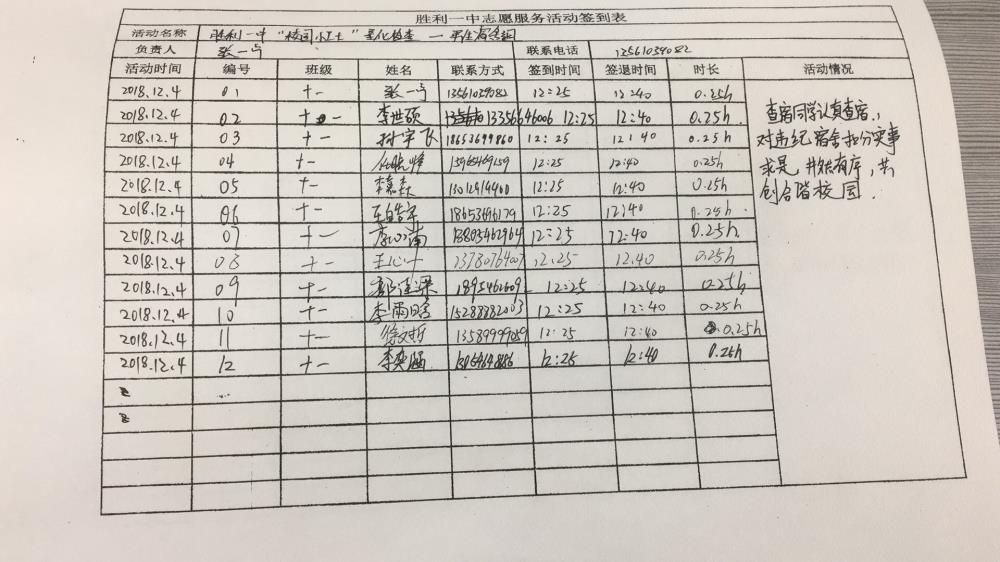 胜利一中志愿服务活动签到表
活动名称 胜利一中"校园小卫士"量化检查 一 男生宿舍组
负责人 张一宁 联系电话 13561039082
活动时间 编号 班级 姓名 联系方式 签到时间 签退时间 时长 活动情况
2018.12.4 01 十一 张一宁 13561039082 12:25 12:40 0.25h
2018.12.4 02 十一 李世硕 13356646006 12:25 12:40 0.25h
2018.12.4 03 十一 宇飞 18653699860 12:25 12:40 0.25h
2018.12.4 04 十一 15965469159 12:25 12:40 0.25h
2018.12.4 05 十一 李嘉森 12:25 12:40 0.25h
2018.12.4 06 十一 18653696179 12:25 12:40 0.25h
2018.12.4 07 十一 13805462964 12:25 12:40 0.25h
2018.12.4 08 十一 王心一 12:25 12:40 0.25h
2018.12.4 09 十一 12:25 12:40 0.25h
2018.12.4 10 十一 李雨晗 15288882003 12:25 12:40 0.25h
2018.12.4 11 十一 徐文哲 13589999059 12:25 12:40 0.25h
2018.12.4 12 十一 李奕涵 12:25 12:40 0.25h
查宿同学认真查宿,
对违纪宿舍扣分实事
求是,井然有序,共
创和谐校园.